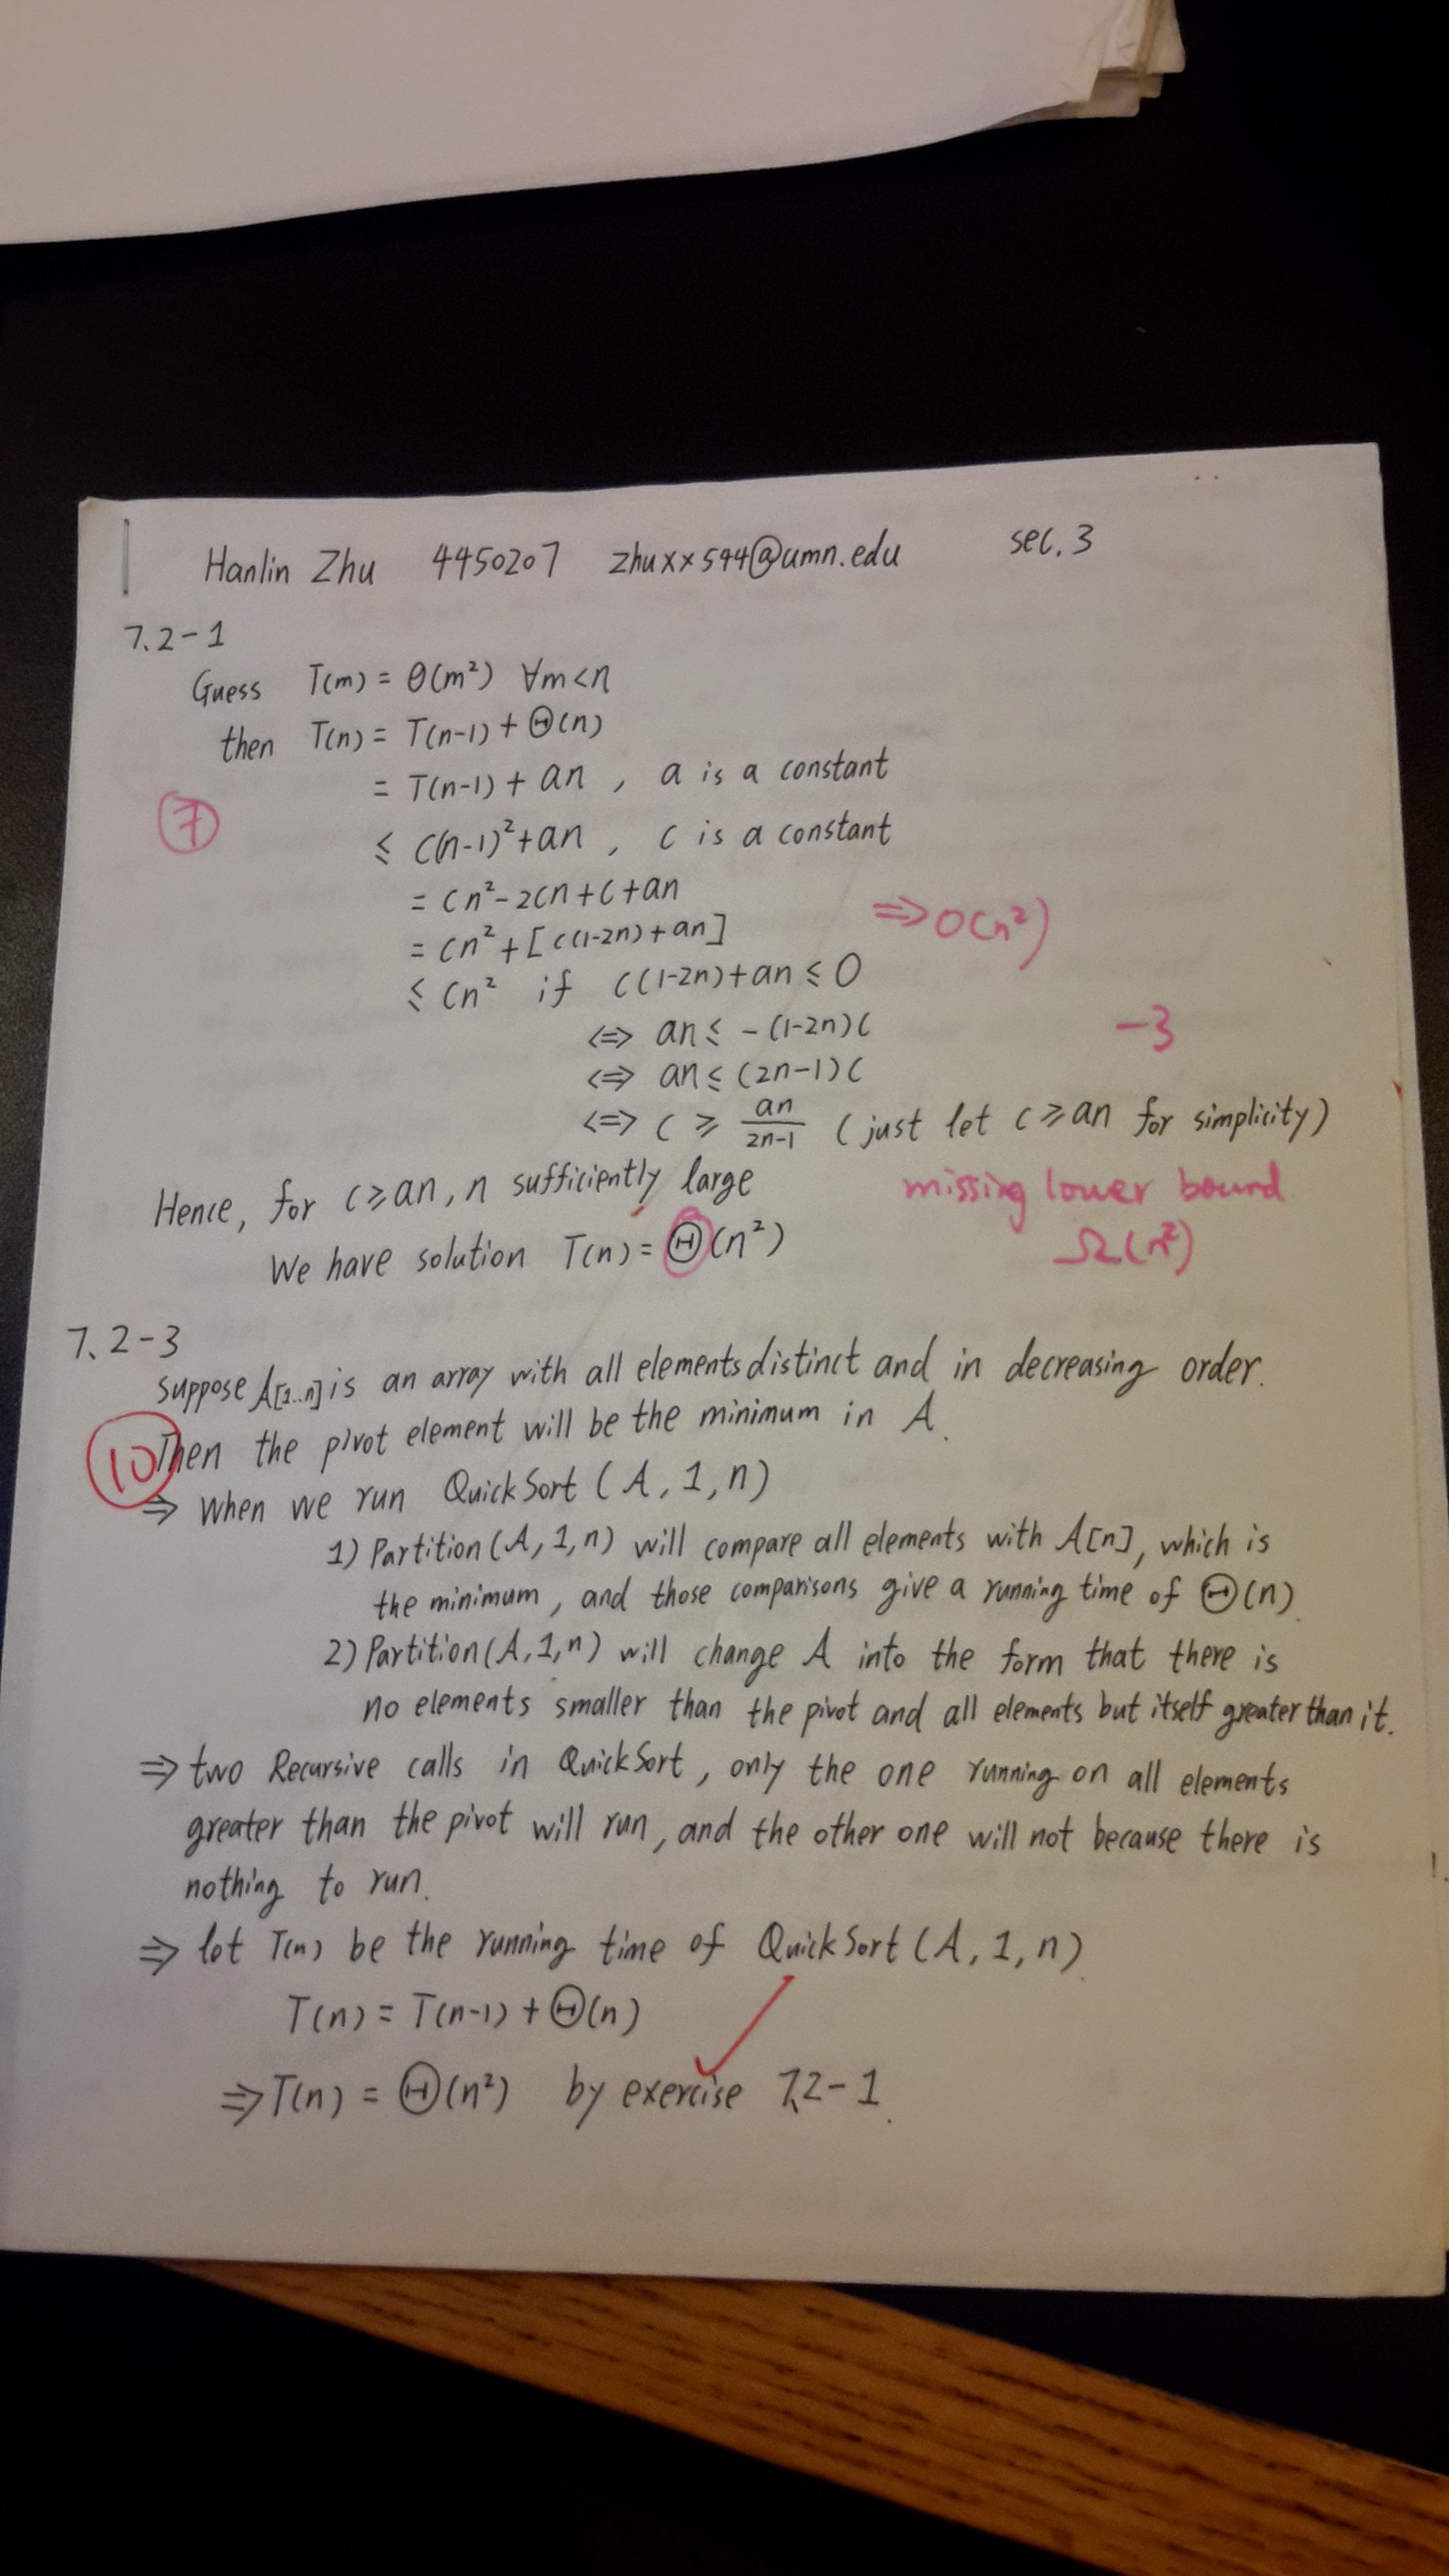 Hanlin Zhu 4450207 zhuxx594@umn.edu sec. 3
7.2-1
Guess T(m) = Θ(m²) ∀m<n
then T(n) = T(n-1) + Θ(n)
= T(n-1) + an , a is a constant
⑦
≤ C(n-1)²+an , C is a constant
= Cn²-2Cn+C+an
⇒ O(n²)
= Cn²+[C(1-2n)+an]
≤ Cn² if C(1-2n)+an ≤ 0
⇔ an ≤ -(1-2n)C
-3
⇔ an ≤ (2n-1)C
⇔ C ≥ an/(2n-1) (just let C ≥ an for simplicity)
Hence, for C ≥ an, n sufficiently large
missing lower bound
We have solution T(n) = Θ(n²)
Ω(n²)
7.2-3
suppose A[1..n] is an array with all elements distinct and in decreasing order.
⑩
Then the pivot element will be the minimum in A.
⇒ When we run QuickSort (A, 1, n)
1) Partition(A, 1, n) will compare all elements with A[n], which is
the minimum, and those comparisons give a running time of Θ(n).
2) Partition(A, 1, n) will change A into the form that there is
no elements smaller than the pivot and all elements but itself greater than it.
⇒ two Recursive calls in QuickSort, only the one running on all elements
greater than the pivot will run, and the other one will not because there is
nothing to run.
⇒ let T(n) be the running time of QuickSort (A, 1, n).
T(n) = T(n-1) + Θ(n)
⇒ T(n) = Θ(n²) by exercise 7.2-1.